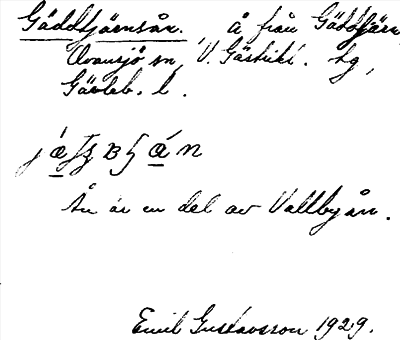 Gäddtjärnsån. Å från Gäddtjärn,
Ovansjö sn, V. Gästrikl. tg,
Gävleb. l.
Ån är en del av Vallbyån.
Emil Gustavsson 1929.